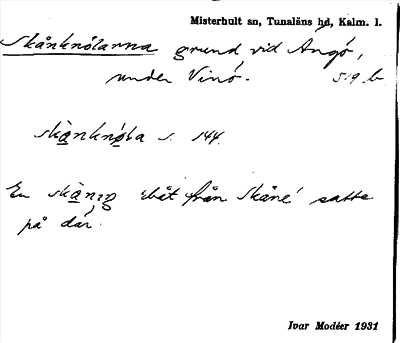 Misterhult sn, Tunaläns hd, Kalm. l.
Skånknölarna grund vid Ängö,
under Vinö. 519 b
skànknǿla s. 144.
En skànıŋ ebåt från Skåne satte
på där.
Ivar Modéer 1931